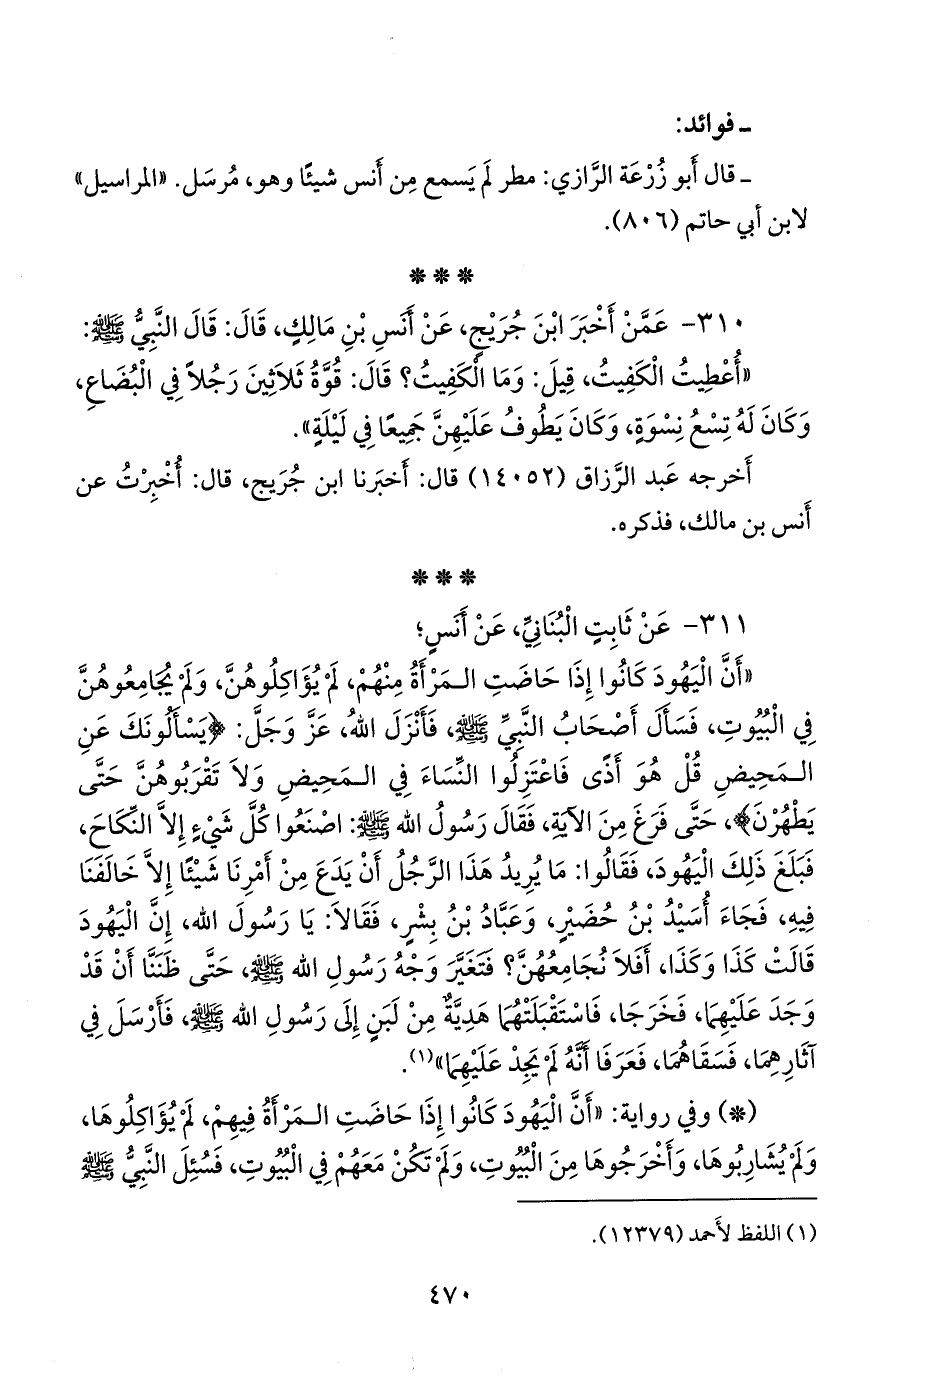 ـ فوائد:
ـ قال أَبو زُرْعَة الرَّازي: مطر لَم يَسمع مِن أَنس شيئًا وهو، مُرسَل. «المراسيل»
لابن أبي حاتم (٨٠٦).
* * *
٣١٠- عَمَّنْ أَخْبَرَ ابْنَ جُرَيْجٍ، عَنْ أَنَسِ بْنِ مَالِكٍ، قَالَ: قَالَ النَّبِيُّ ﷺ:
«أُعْطِيتُ الْكَفِيتُ، قِيلَ: وَمَا الْكَفِيتُ؟ قَالَ: قُوَّةُ ثَلاَثِينَ رَجُلاً فِي الْبُضَاعِ،
وَكَانَ لَهُ تِسْعُ نِسْوَةٍ، وَكَانَ يَطُوفُ عَلَيْهِنَّ جَمِيعًا فِي لَيْلَةٍ».
أَخرجه عَبد الرَّزاق (١٤٠٥٢) قال: أَخبَرنا ابن جُرَيج، قال: أُخْبِرْتُ عن
أَنس بن مالك، فذكره.
* * *
٣١١- عَنْ ثَابِتٍ الْبُنَانِيِّ، عَنْ أَنَسٍ؛
«أَنَّ الْيَهُودَ كَانُوا إِذَا حَاضَتِ الـمَرْأَةُ مِنْهُمْ، لَمْ يُؤَاكِلُوهُنَّ، وَلَمْ يُجَامِعُوهُنَّ
فِي الْبُيُوتِ، فَسَأَلَ أَصْحَابُ النَّبِيِّ ﷺ، فَأَنْزَلَ اللهُ، عَزَّ وَجَلَّ: ﴿يَسْأَلُونَكَ عَنِ
الـمَحِيضِ قُلْ هُوَ أَذًى فَاعْتَزِلُوا النِّسَاءَ فِي الـمَحِيضِ وَلاَ تَقْرَبُوهُنَّ حَتَّى
يَطْهُرْنَ﴾، حَتَّى فَرَغَ مِنَ الآيَةِ، فَقَالَ رَسُولُ الله ﷺ: اصْنَعُوا كُلَّ شَيْءٍ إِلاَّ النِّكَاحَ،
فَبَلَغَ ذَلِكَ الْيَهُودَ، فَقَالُوا: مَا يُرِيدُ هَذَا الرَّجُلُ أَنْ يَدَعَ مِنْ أَمْرِنَا شَيْئًا إِلاَّ خَالَفَنَا
فِيهِ، فَجَاءَ أُسَيْدُ بْنُ حُضَيْرٍ، وَعَبَّادُ بْنُ بِشْرٍ، فَقَالاَ: يَا رَسُولَ الله، إِنَّ الْيَهُودَ
قَالَتْ كَذَا وَكَذَا، أَفَلاَ نُجَامِعُهُنَّ؟ فَتَغَيَّرَ وَجْهُ رَسُولِ الله ﷺ، حَتَّى ظَنَنَّا أَنْ قَدْ
وَجَدَ عَلَيْهِمَا، فَخَرَجَا، فَاسْتَقْبَلَتْهُمَا هَدِيَّةٌ مِنْ لَبَنٍ إِلَى رَسُولِ الله ﷺ، فَأَرْسَلَ فِي
آثَارِهِمَا، فَسَقَاهُمَا، فَعَرَفَا أَنَّهُ لَمْ يَجِدْ عَلَيْهِمَا»(١).
(*) وفي رواية: «أَنَّ الْيَهُودَ كَانُوا إِذَا حَاضَتِ الـمَرْأَةُ فِيهِمْ، لَمْ يُؤَاكِلُوهَا،
وَلَمْ يُشَارِبُوهَا، وَأَخْرَجُوهَا مِنَ الْبُيُوتِ، وَلَمْ تَكُنْ مَعَهُمْ فِي الْبُيُوتِ، فَسُئِلَ النَّبِيُّ ﷺ
(١) اللفظ لأَحمد (١٢٣٧٩).
٤٧٠